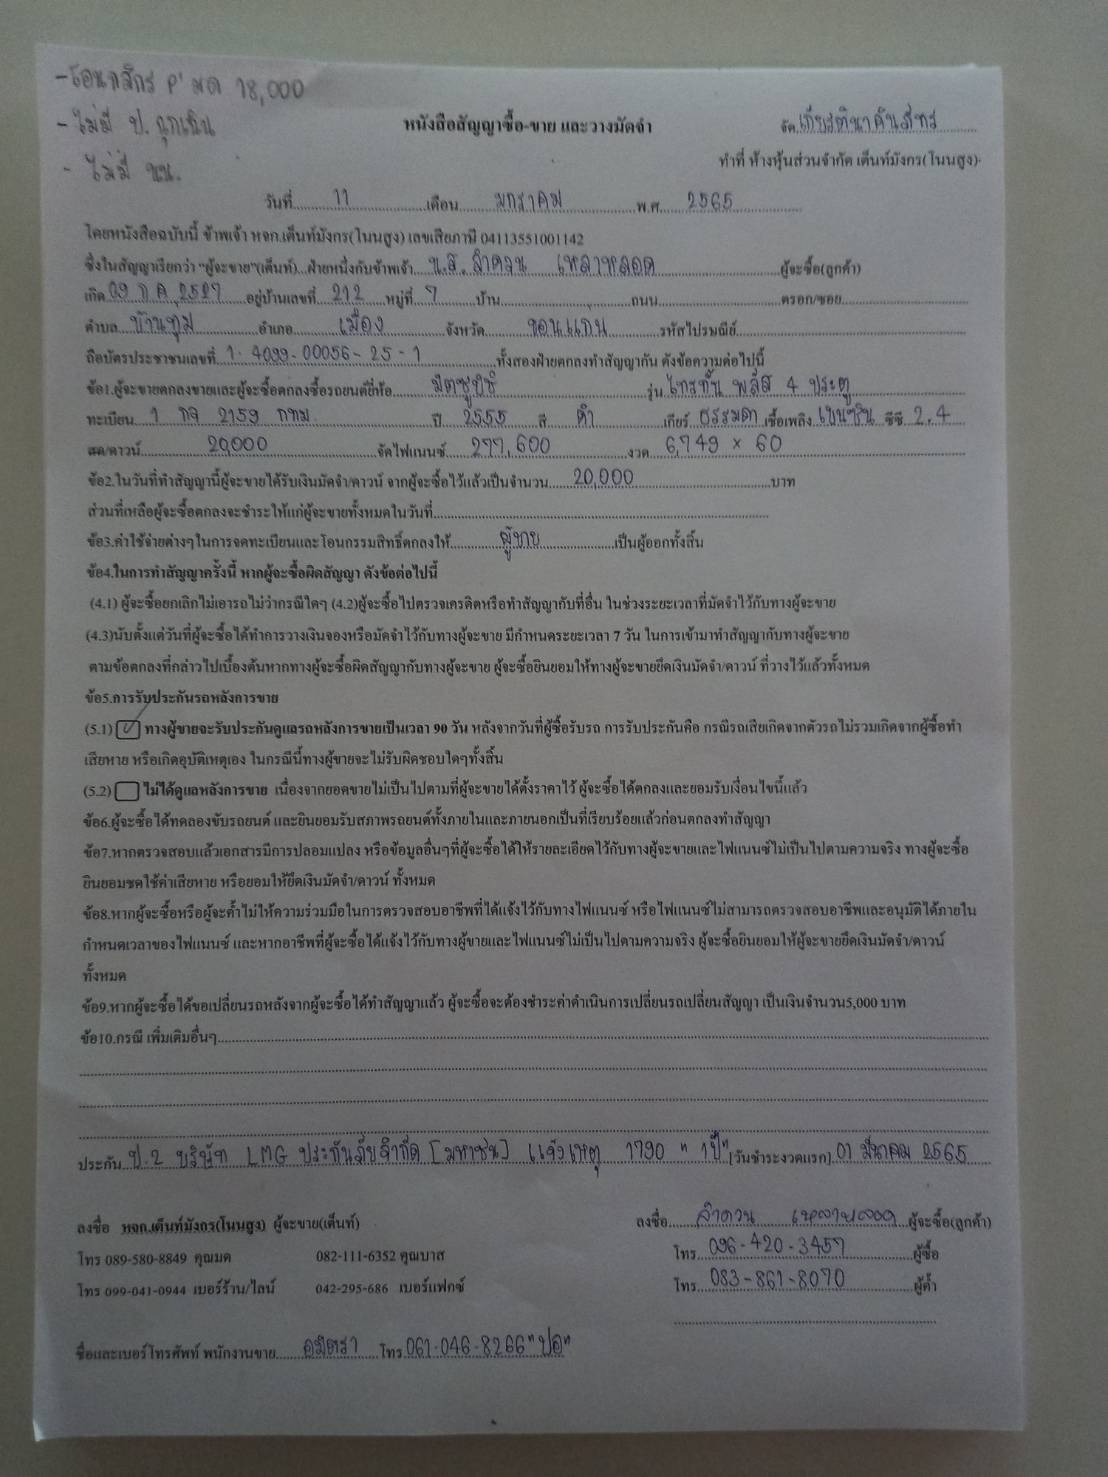 - โอนกสิกร P' มด 18,000
- ไม่มี ป. ฉุกเฉิน
- ไม่มี นน.
หนังสือสัญญาซื้อ-ขาย และวางมัดจำ
จัด เกียรตินาคินภัทร
ทำที่ ห้างหุ้นส่วนจำกัด เต็นท์มังกร(โนนสูง)
วันที่ 11 เดือน มกราคม พ.ศ. 2565
โดยหนังสือฉบับนี้ ข้าพเจ้า หจก.เต็นท์มังกร(โนนสูง) เลขเสียภาษี 04113551001142
ซึ่งในสัญญาเรียกว่า "ผู้จะขาย"(เต็นท์)...ฝ่ายหนึ่งกับข้าพเจ้า น.ส. ลำดวน เหลาหลอด ผู้จะซื้อ(ลูกค้า)
เกิด 09 ก.ค. 2527 อยู่บ้านเลขที่ 212 หมู่ที่ 7 บ้าน ถนน ตรอก/ซอย
ตำบล บ้านทุ่ม อำเภอ เมือง จังหวัด ขอนแก่น รหัสไปรษณีย์
ถือบัตรประชาชนเลขที่ 1-4099-00056-25-1 ทั้งสองฝ่ายตกลงทำสัญญากัน ดังข้อความต่อไปนี้
ข้อ1.ผู้จะขายตกลงขายและผู้จะซื้อตกลงซื้อรถยนต์ยี่ห้อ มิตซูบิชิ รุ่น ไทรทัน พลัส 4 ประตู
ทะเบียน 1 กจ 2159 กทม. ปี 2555 สี ดำ เกียร์ ธรรมดา เชื้อเพลิง เบนซิน ซีซี 2.4
สด/ดาวน์ 20,000 จัดไฟแนนซ์ 277,600 งวด 6,749 x 60
ข้อ2.ในวันที่ทำสัญญานี้ผู้จะขายได้รับเงินมัดจำ/ดาวน์ จากผู้จะซื้อไว้แล้วเป็นจำนวน 20,000 บาท
ส่วนที่เหลือผู้จะซื้อตกลงจะชำระให้แก่ผู้จะขายทั้งหมดในวันที่
ข้อ3.ค่าใช้จ่ายต่างๆในการจดทะเบียนและโอนกรรมสิทธิ์ตกลงให้ ผู้ขาย เป็นผู้ออกทั้งสิ้น
ข้อ4.ในการทำสัญญาครั้งนี้ หากผู้จะซื้อผิดสัญญา ดังข้อต่อไปนี้
(4.1) ผู้จะซื้อยกเลิกไม่เอารถไม่ว่ากรณีใดๆ (4.2)ผู้จะซื้อไปตรวจเครดิตหรือทำสัญญากับที่อื่น ในช่วงระยะเวลาที่มัดจำไว้กับทางผู้จะขาย
(4.3)นับตั้งแต่วันที่ผู้จะซื้อได้ทำการวางเงินจองหรือมัดจำไว้กับทางผู้จะขาย มีกำหนดระยะเวลา 7 วัน ในการเข้ามาทำสัญญากับทางผู้จะขาย
ตามข้อตกลงที่กล่าวไปเบื้องต้นหากทางผู้จะซื้อผิดสัญญากับทางผู้จะขาย ผู้จะซื้อยินยอมให้ทางผู้จะขายยึดเงินมัดจำ/ดาวน์ ที่วางไว้แล้วทั้งหมด
ข้อ5.การรับประกันรถหลังการขาย
(5.1) ทางผู้ขายจะรับประกันดูแลรถหลังการขายเป็นเวลา 90 วัน หลังจากวันที่ผู้ซื้อรับรถ การรับประกันคือ กรณีรถเสียเกิดจากตัวรถไม่รวมเกิดจากผู้ซื้อทำ
เสียหาย หรือเกิดอุบัติเหตุเอง ในกรณีนี้ทางผู้ขายจะไม่รับผิดชอบใดๆทั้งสิ้น
(5.2) ไม่ได้ดูแลหลังการขาย เนื่องจากยอดขายไม่เป็นไปตามที่ผู้จะขายได้ตั้งราคาไว้ ผู้จะซื้อได้ตกลงและยอมรับเงื่อนไขนี้แล้ว
ข้อ6.ผู้จะซื้อได้ทดลองขับรถยนต์ และยินยอมรับสภาพรถยนต์ทั้งภายในและภายนอกเป็นที่เรียบร้อยแล้วก่อนตกลงทำสัญญา
ข้อ7.หากตรวจสอบแล้วเอกสารมีการปลอมแปลง หรือข้อมูลอื่นๆที่ผู้จะซื้อได้ให้รายละเอียดไว้กับทางผู้จะขายและไฟแนนซ์ไม่เป็นไปตามความจริง ทางผู้จะซื้อ
ยินยอมชดใช้ค่าเสียหาย หรือยอมให้ยึดเงินมัดจำ/ดาวน์ ทั้งหมด
ข้อ8.หากผู้จะซื้อหรือผู้จะค้ำไม่ให้ความร่วมมือในการตรวจสอบอาชีพที่ได้แจ้งไว้กับทางไฟแนนซ์ หรือไฟแนนซ์ไม่สามารถตรวจสอบอาชีพและอนุมัติได้ภายใน
กำหนดเวลาของไฟแนนซ์ และหากอาชีพที่ผู้จะซื้อได้แจ้งไว้กับทางผู้ขายและไฟแนนซ์ไม่เป็นไปตามความจริง ผู้จะซื้อยินยอมให้ผู้จะขายยึดเงินมัดจำ/ดาวน์
ทั้งหมด
ข้อ9.หากผู้จะซื้อได้ขอเปลี่ยนรถหลังจากผู้จะซื้อได้ทำสัญญาแล้ว ผู้จะซื้อจะต้องชำระค่าดำเนินการเปลี่ยนรถเปลี่ยนสัญญา เป็นเงินจำนวน5,000 บาท
ข้อ10.กรณี เพิ่มเติมอื่นๆ
ประกัน ป.2 บริษัท LMG ประกันภัยจำกัด [มหาชน] แจ้งเหตุ 1790 "1ปี" [วันชำระงวดแรก] 01 มีนาคม 2565
ลงชื่อ หจก.เต็นท์มังกร(โนนสูง) ผู้จะขาย(เต็นท์)
ลงชื่อ ลำดวน เหลาหลอด ผู้จะซื้อ(ลูกค้า)
โทร 089-580-8849 คุณมด 082-111-6352 คุณบาส
โทร 096-420-3457 ผู้ซื้อ
โทร 099-041-0944 เบอร์ร้าน/ไลน์ 042-295-686 เบอร์แฟกซ์
โทร 083-861-8070 ผู้ค้ำ
ชื่อและเบอร์โทรศัพท์ พนักงานขาย อมิตรา โทร 061-046-8266 "ปอ"